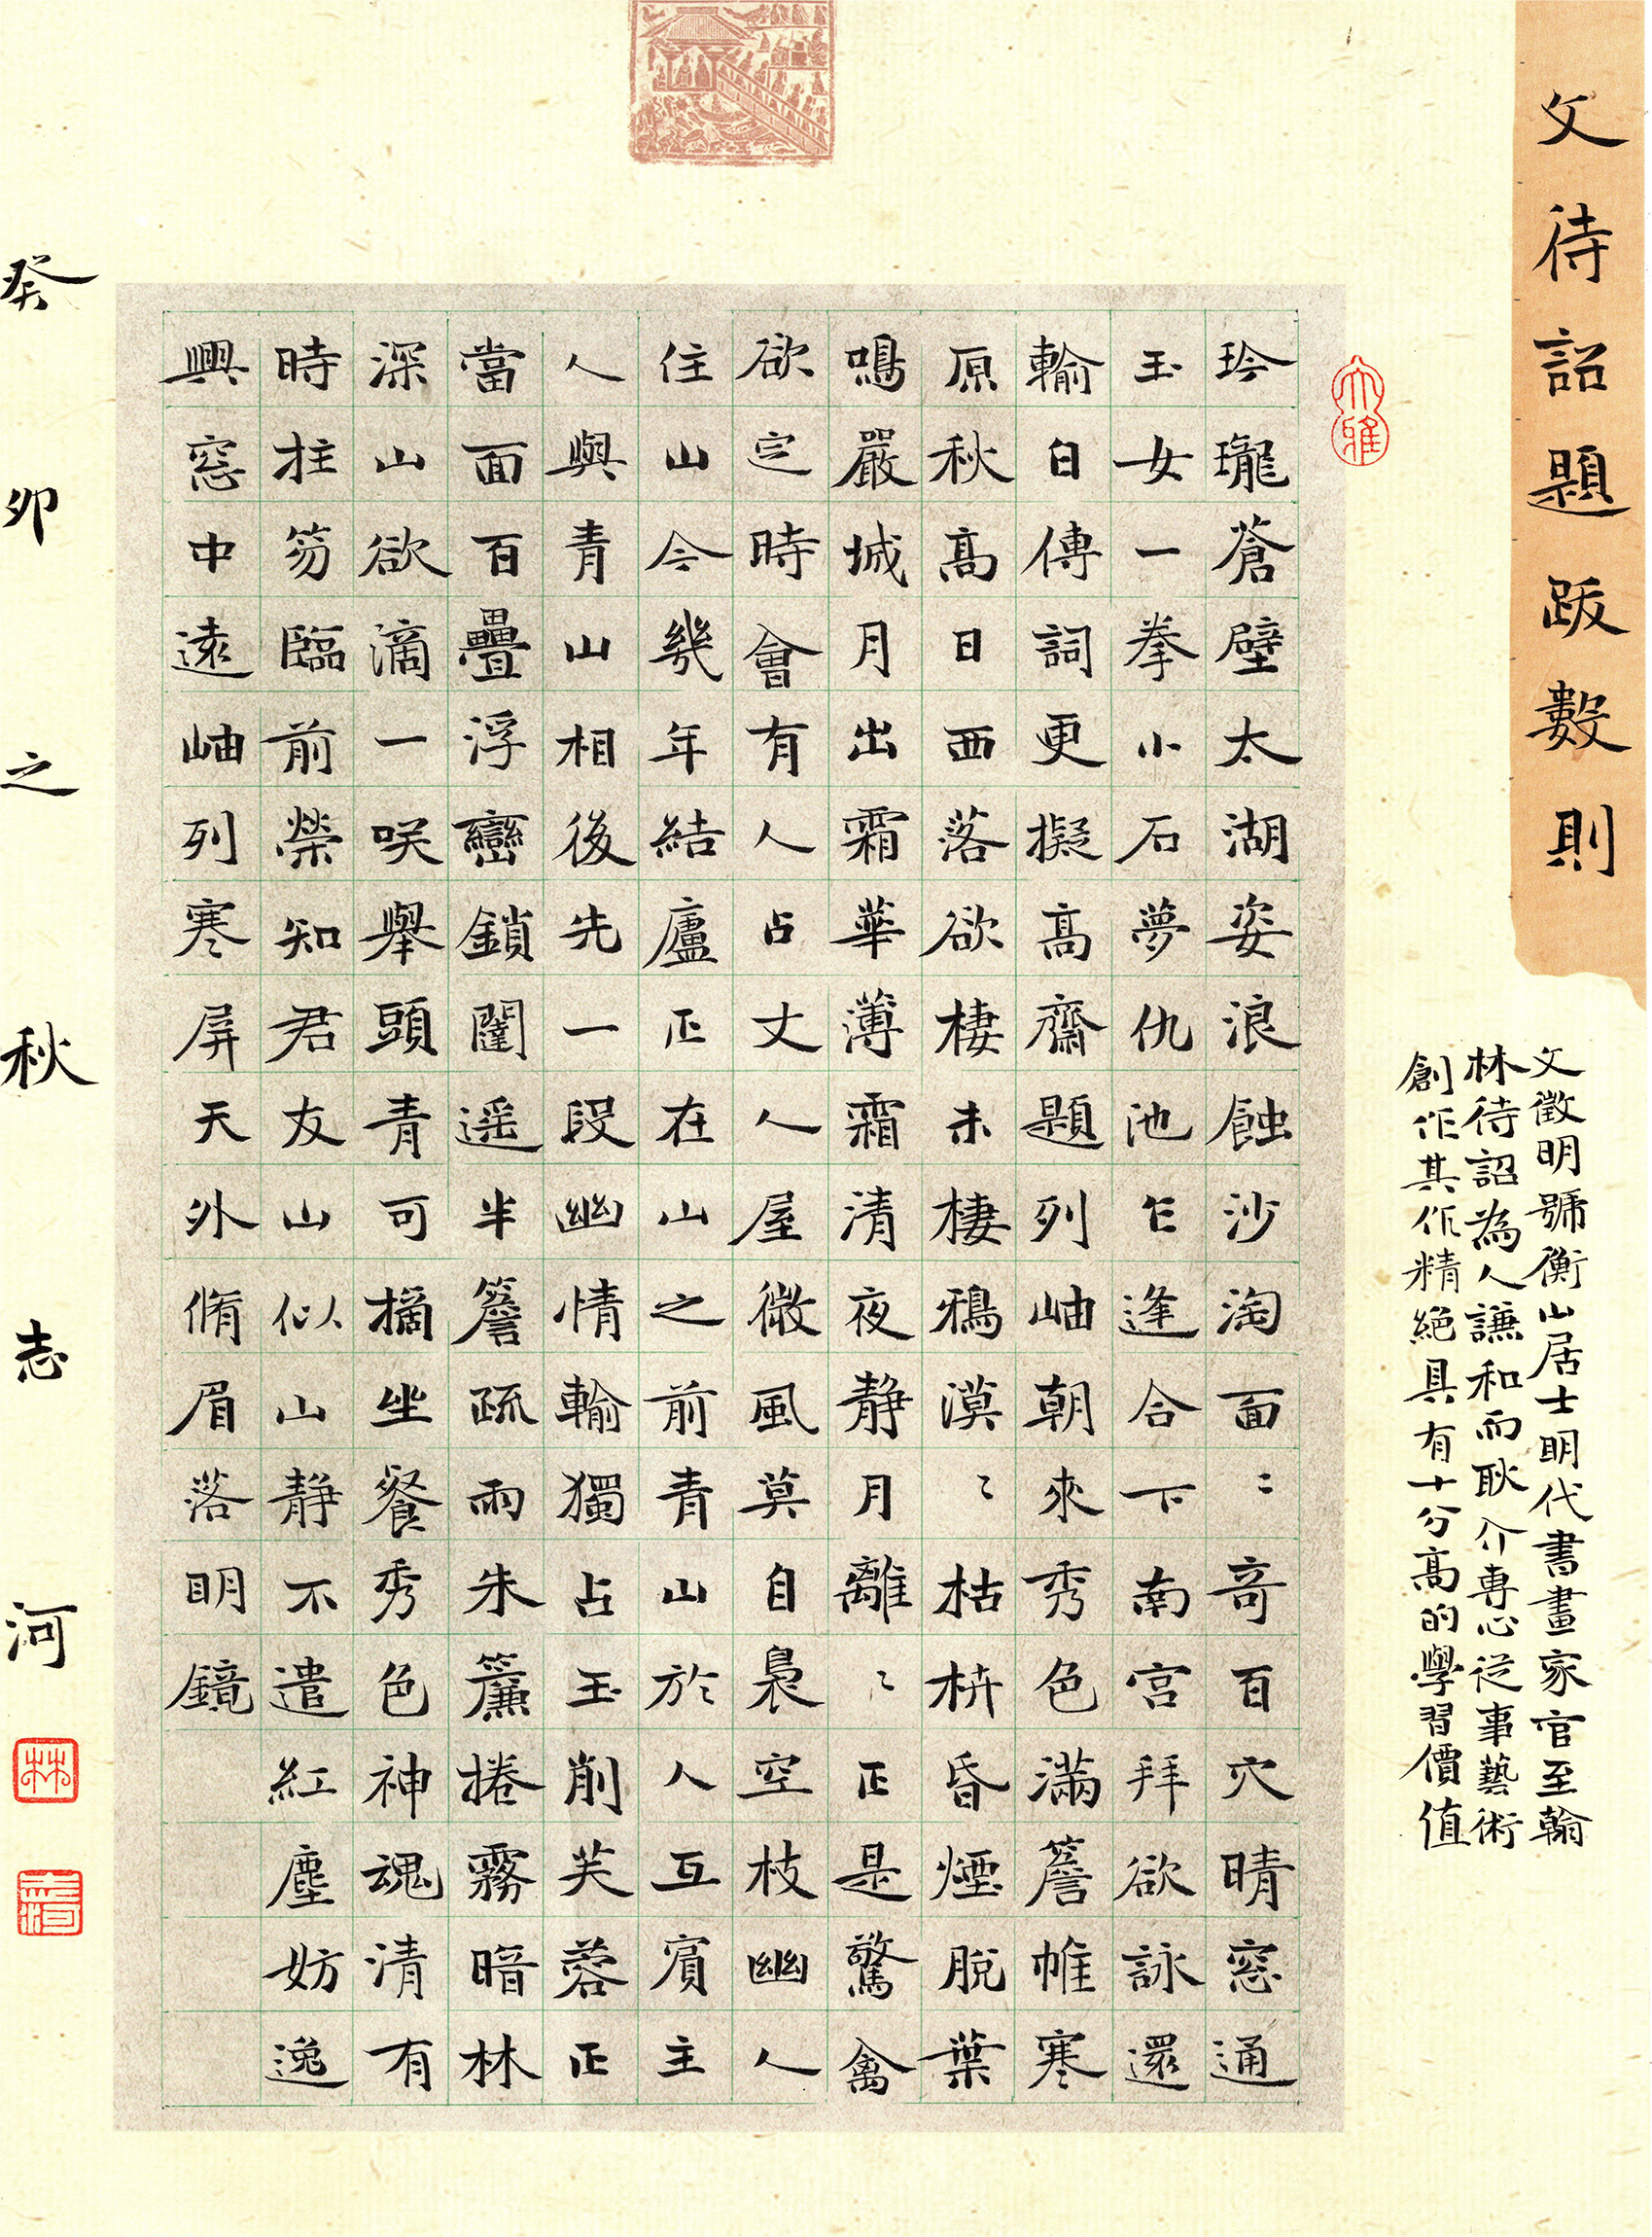 文待詔題跋數則
文徵明號衡山居士明代書畫家官至翰
林待詔為人謙和而耿介專心從事藝術
創作其作精絕具有十分高的學習價值
大雅
玲瓏蒼壁太湖姿浪蝕沙淘面〻奇百穴晴窓通
玉女一拳小石夢仇池乍逢合下南宮拜欲詠還
輸白傳詞更擬高齋題列岫朝來秀色滿簷帷寒
原秋高日西落欲棲未棲鴉漠〻枯枿昏煙脫葉
鳴嚴城月出霜華薄霜清夜静月離〻正是驚禽
欲定時會有人占丈人屋微風莫自裊空枝幽人
住山今幾年結廬正在山之前青山於人互賓主
人與青山相後先一段幽情輸獨占玉削芙蓉正
當面百疊浮巒鎖闥遥半簷疏雨朱簾捲霧暗林
深山欲滴一咲舉頭青可摘坐餐秀色神魂清有
時拄笏臨前榮知君友山似山静不遣紅塵妨逸
興窓中遠岫列寒屏天外脩眉落明鏡
癸卯之秋志河
林
志河